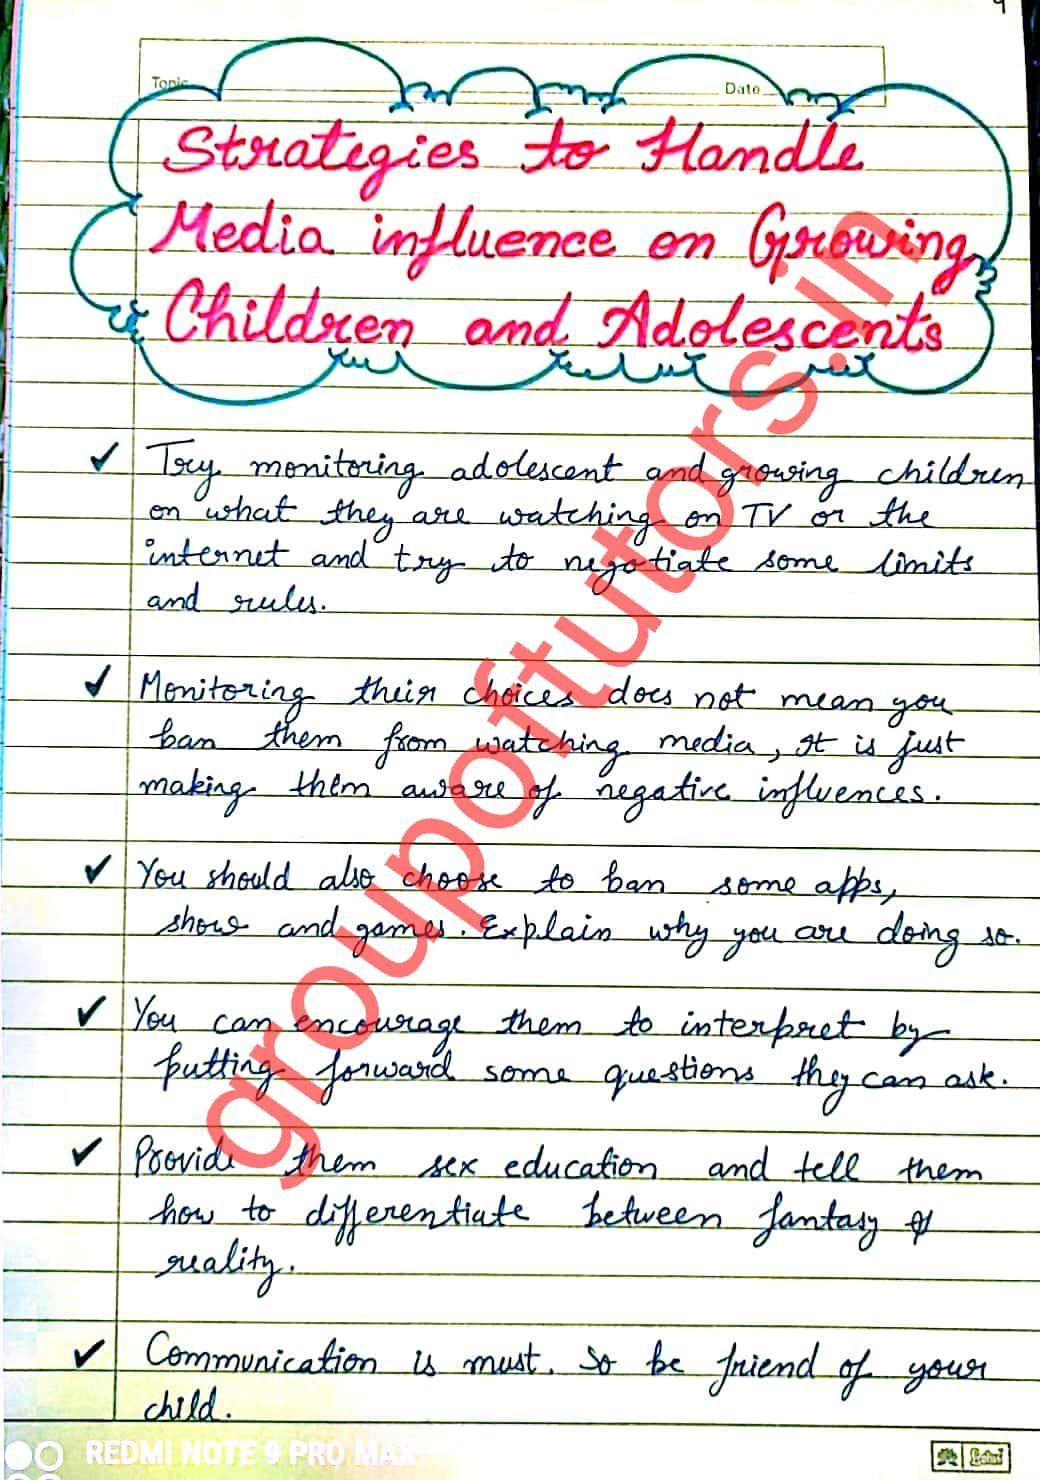 Topic
Date
Strategies to Handle
Media influence on Growing
Children and Adolescents
✓ Try monitoring adolescent and growing children
on what they are watching on TV or the
internet and try to negotiate some limits
and rules.
✓ Monitoring their choices does not mean you
ban them from watching media, it is just
making them aware of negative influences.
✓ You should also choose to ban some apps,
shows and games. Explain why you are doing so.
✓ You can encourage them to interpret by
putting forward some questions they can ask.
✓ Provide them sex education and tell them
how to differentiate between fantasy &
reality.
✓ Communication is must. So be friend of your
child.
groupoftutors.in
REDMI NOTE 9 PRO MAX